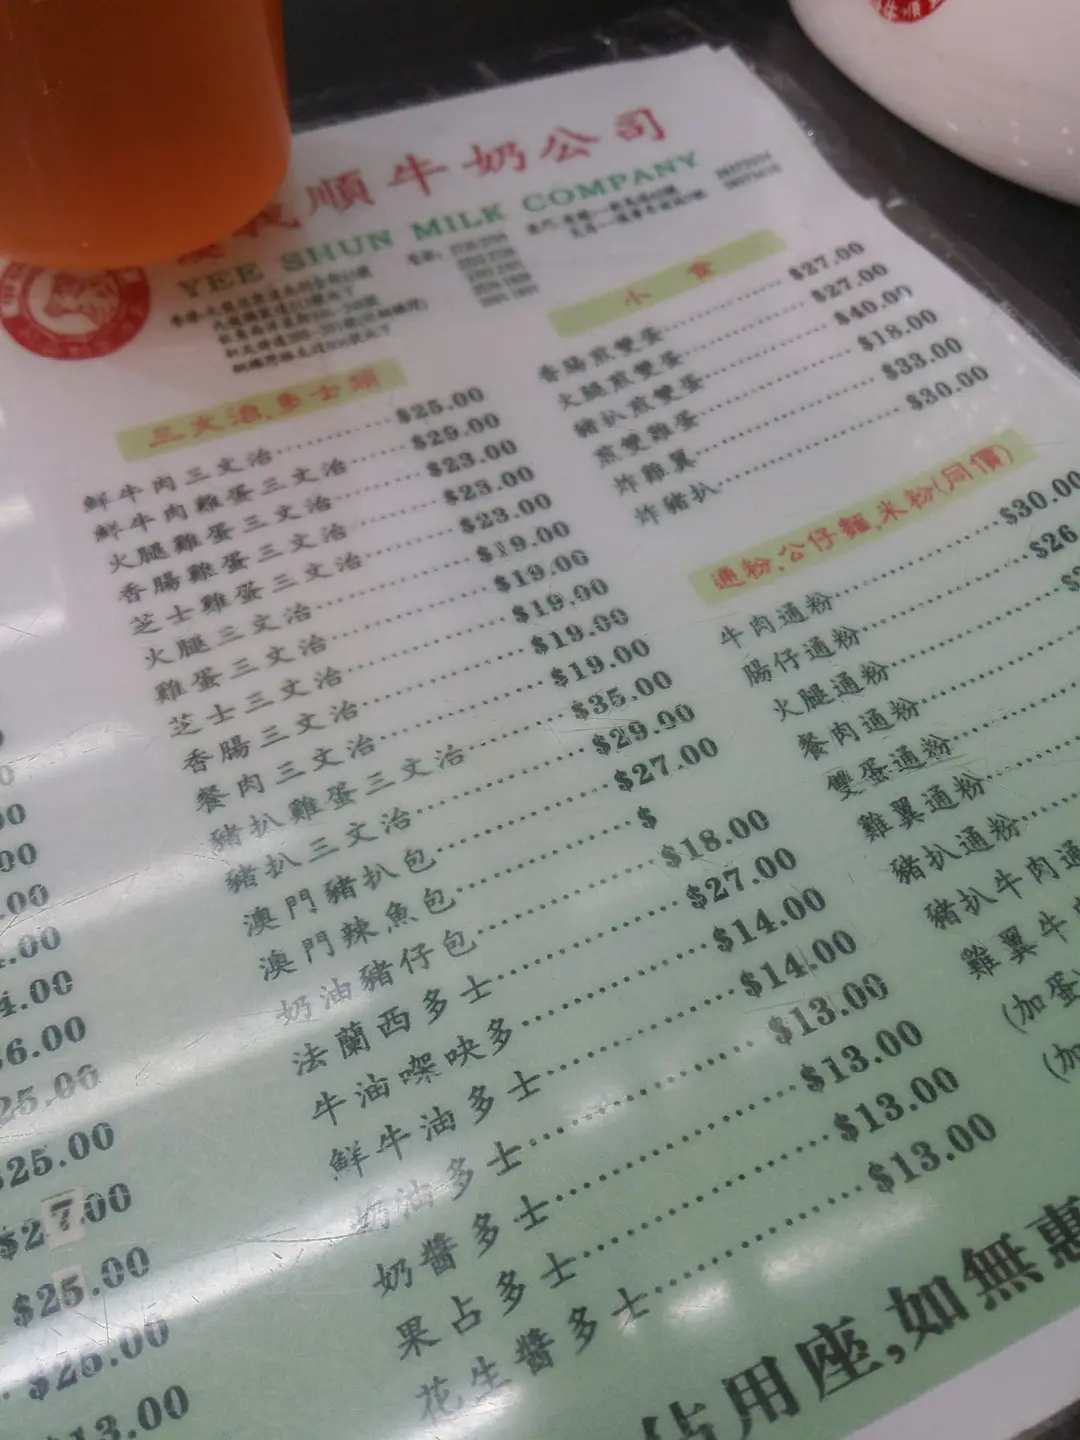 義順牛奶公司
YEE SHUN MILK COMPANY
三文治,多士類
鮮牛肉三文治 $25.00
鮮牛肉雞蛋三文治 $29.00
火腿雞蛋三文治 $23.00
香腸雞蛋三文治 $23.00
芝士雞蛋三文治 $23.00
火腿三文治 $19.00
雞蛋三文治 $19.00
芝士三文治 $19.00
香腸三文治 $19.00
餐肉三文治 $19.00
豬扒雞蛋三文治 $35.00
豬扒三文治 $29.00
澳門豬扒包 $27.00
澳門辣魚包 $
奶油豬仔包 $18.00
法蘭西多士 $27.00
牛油㗎吷多 $14.00
鮮牛油多士 $14.00
奶油多士 $13.00
奶醬多士 $13.00
果占多士 $13.00
花生醬多士 $13.00
小食
香腸煎雙蛋 $27.00
火腿煎雙蛋 $27.00
豬扒煎雙蛋 $40.00
煎雙雞蛋 $18.00
炸雞翼 $33.00
炸豬扒 $30.00
通粉,公仔麵,米粉(同價)
牛肉通粉 $30.00
腸仔通粉 $26
火腿通粉
餐肉通粉
雙蛋通粉
雞翼通粉
豬扒通粉
豬扒牛肉通
雞翼牛肉
(加蛋
(加
.00
.00
6.00
25.00
$25.00
$27.00
$25.00
$25.00
13.00
佔用座,如無惠